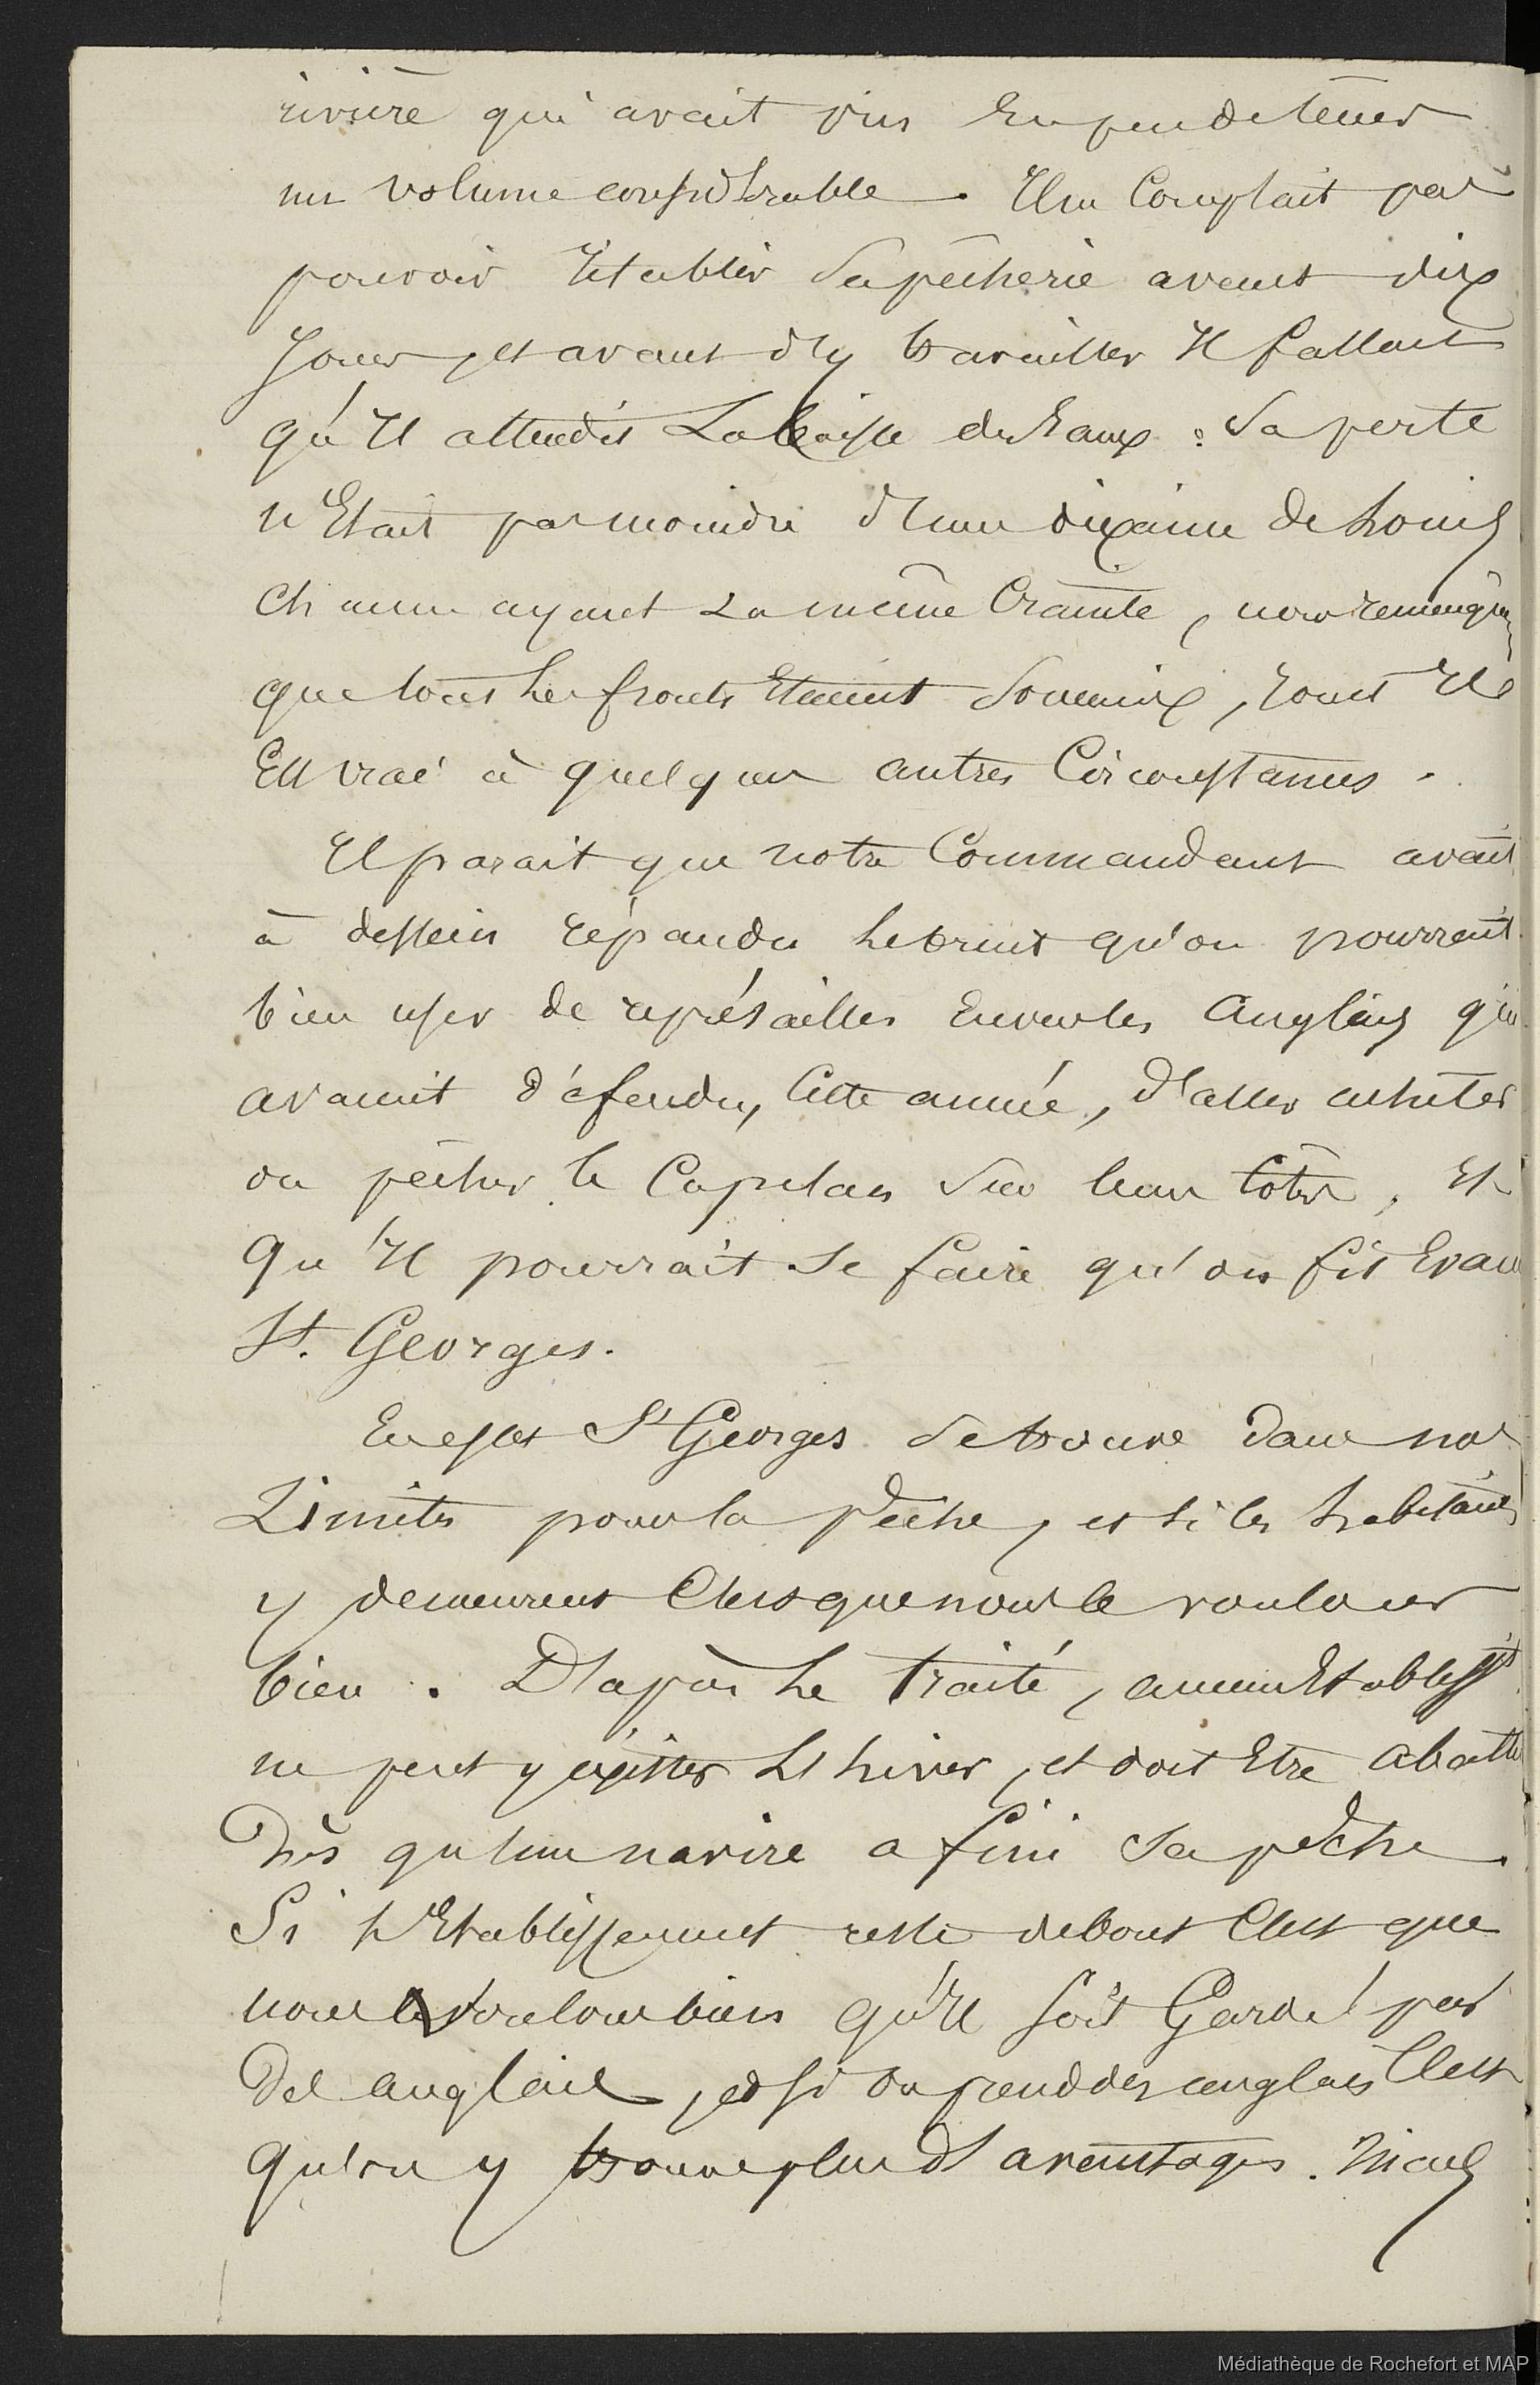 rivière qui avait pris En peu de tems
un volume considérable. Il ne Comptait pas
pouvoir rétablir Sa pêcherie avant dix
Jours, et avant d'y travailler Il fallait
qu'Il attendit La baisse des Eaux : Sa perte
n'Etait pas moindre d'une dixaine de Louis
Chacun ayant La même Crainte, nous remarquâmes
que tous Les fronts Etaient Soucieux, Joint Il
Est vrai à quelques autres Circonstances.
Il parait que notre Commandant avait
à dessein répandu Le bruit qu'on pourrait
bien user de représailles Envers les Anglais qui
avaient défendu, Cette année, d'aller acheter
ou pêcher le Capelan Sur leur Côte, Et
Qu'Il pourrait Se faire qu'on fit Evacuer
St. Georges.
En effet St Georges Se trouve dans nos
Limites pour la Pêche, et si les habitants
y demeurent C'est que nous le voulons
bien. D'après Le Traité, aucun Establisst
ne peut y exister L'hiver, et doit Etre abattu
Dès qu'un navire a fini Sa pêche.
Si L'Etablissement reste debout C'est que
nous le voulons bien qu'Il Soit Gardé par
Des anglais, et Si On prend des anglais C'est
Qu'on y trouve plus d'avantages. Mais
Médiathèque de Rochefort et MAP